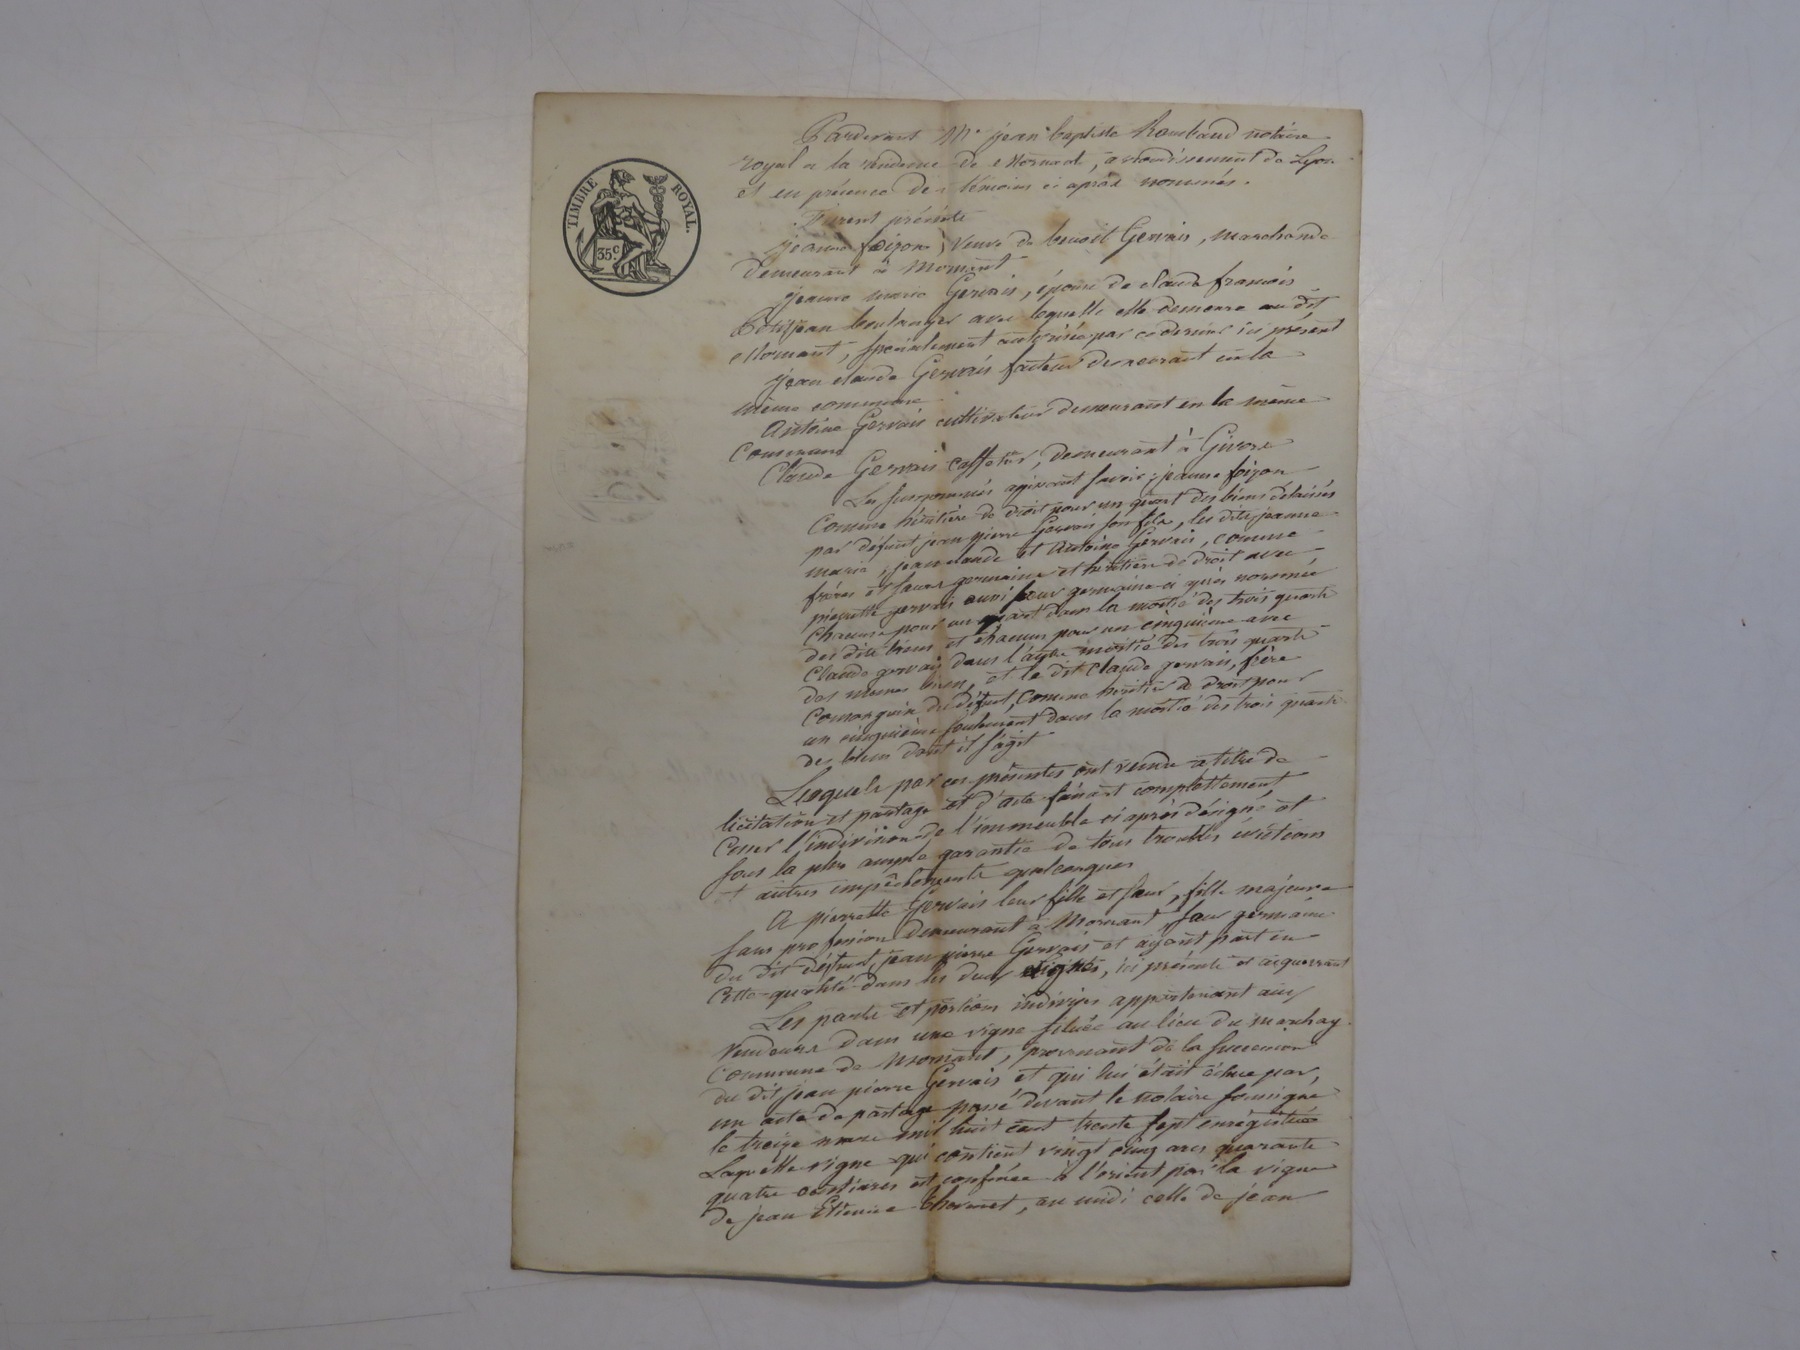 TIMBRE ROYAL.
35 c
Pardevant Me jean baptiste Rambaud notaire
royal à la résidence de Mornant, arrondissement de Lyon
et en présence des témoins ci après nommés.
Furent présents
jeanne foizon, veuve de benoit Gervais, marchande
demeurant à Mornant
jeanne marie Gervais, épouse de claude françois
Petitjean boulanger avec lequelle elle demeure au dit
Mornant, spécialement autorisée par ce dernier ici présent
jean claude Gervais facteur demeurant en la
même commune
Antoine Gervais cultivateur demeurant en la même
Commune
Claude Gervais caffetier, demeurant à Givors
Les susnommés agissant savoir; jeanne foizon
comme héritière de droit pour un quart des biens délaissés
par défunt jean pierre Gervais son fils, les dits jeanne
marie, jean claude et Antoine Gervais, comme
frères et sœur germains et héritiers de droit avec
pierrette gervais aussi sœur germaine ci après nommée
chacune pour un quart dans la moitié des trois quarts
des dits biens et chacun pour un cinquième avec
Claude gervais dans l'autre moitié des trois quarts
des mêmes biens, et le dit Claude gervais, frère
consanguin du défunt, comme héritier de droit pour
un cinquième seulement dans la moitié des trois quarts
des biens dont il s'agit
Lesquels par ces présentes ont vendu à titre de
licitation et partage et d'acte faisant complettement
cesser l'indivision de l'immeuble ci après désigné et
sous la plus ample garantie de tous troubles évictions
et autres impêchements quelconques
A pierrette Gervais leur fille et sœur, fille majeure
sans profession demeurant à Mornant sœur germaine
du dit défunt jean pierre Gervais et ayant part en
cette qualité dans les deux lignes, ici présente et acquerrant
Les parts et portions indivises appartenant aux
vendeurs dans une vigne située au lieu du
commune de Mornant, provenant de la succession
du dit jean pierre Gervais et qui lui était échue par
un acte de partage passé devant le notaire soussigné
le treize mars mil huit cent trente sept enrégistré
Laquelle vigne qui contient vingt cinq ares quarante
quatre centiares est confinée à l'orient par la vigne
de jean Etienne Thevenet, au midi celle de jean